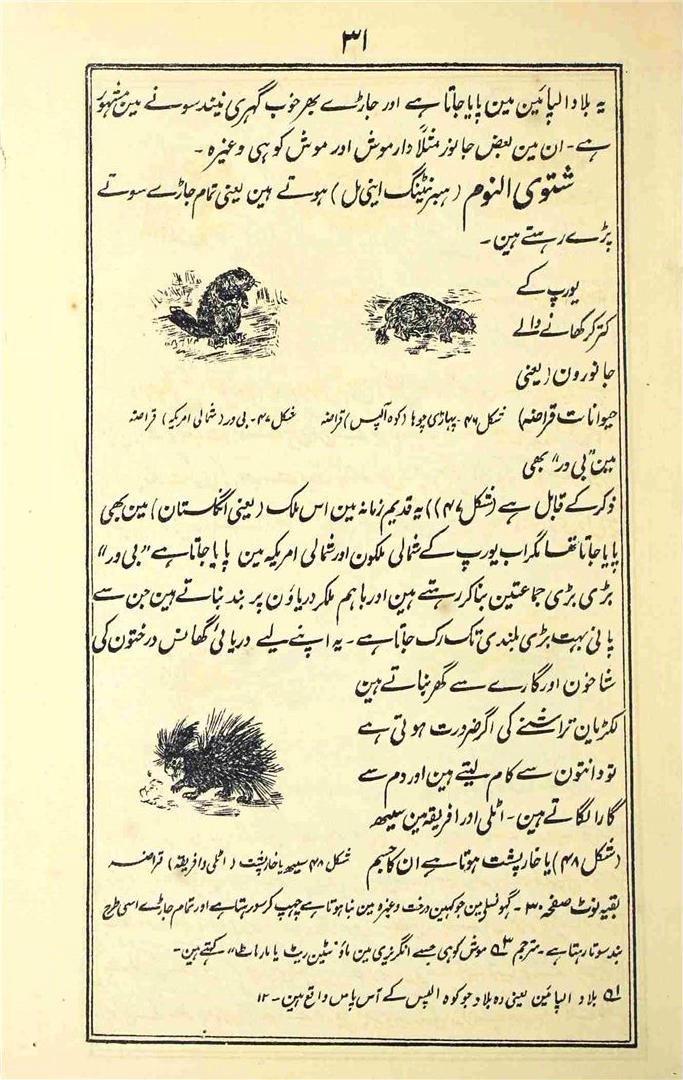 ۳۱
یہ بلاد الپائین مین پایا جاتا ہے اور جاڑے بھر خوب گہری نیند سونے مین مشہور
ہے۔ ان مین بعض جانور مثلاً دارموش اور موش کوہی وغیرہ ۔
شتوی النوم (ہبرنٹینگ اینی مل) ہوتے ہین یعنی تمام جاڑے سوتے
پڑے رہتے ہین۔
یورپ کے
کترکر کھانے والے
جانورون (یعنی
حیوانات قراضہ)
شکل ۴۶۔ پہاڑی چوہا (کوہ آلپس) قراضہ
شکل ۴۷۔ بی ور (شمالی امریکہ) قراضہ
مین ”بی ور“ بھی
ذکر کے قابل ہے (شکل ۴۷)) یہ قدیم زمانہ مین اس ملک (یعنی انگلستان) مین بھی
پایا جاتا تھا مگر اب یورپ کے شمالی ملکون اور شمالی امریکہ مین پایا جاتا ہے ”بی ور“
بڑی بڑی جماعتین بناکر رہتے ہین اور باہم ملکر دریاؤن پر بند بناتے ہین جن سے
پانی بہت بڑی بلندی تک رک جاتا ہے۔ یہ اپنے لیے دریائی گھانس درختون کی
شاخون اور گارے سے گھر بناتے ہین
لکڑیان تراشنے کی اگر ضرورت ہوتی ہے
تو دانتون سے کام لیتے ہین اور دم سے
گارا لگاتے ہین۔ اٹلی اور افریقہ مین سیہھ
(شکل ۴۸) یا خارپشت ہوتا ہے ان کا جسم
شکل ۴۸ سیہھ یا خارپشت (اٹلی و افریقہ) قراضہ
بقیہ نوٹ صفحہ ۳۰۔ گھونسلے مین جو کہین درخت وغیرہ مین بنا ہوتا ہے چھپ کر سو رہتا ہے اور تمام جاڑے اسی طرح
بند سوتا رہتا ہے۔ مترجم ۳؎ موش کوہی جسے انگریزی مین ماؤنٹین ریٹ یا مارماٹ“ کہتے ہین۔
۱؎ بلاد الپائین یعنی وہ بلاد جو کوہ الپس کے آس پاس واقع ہین۔ ۱۲